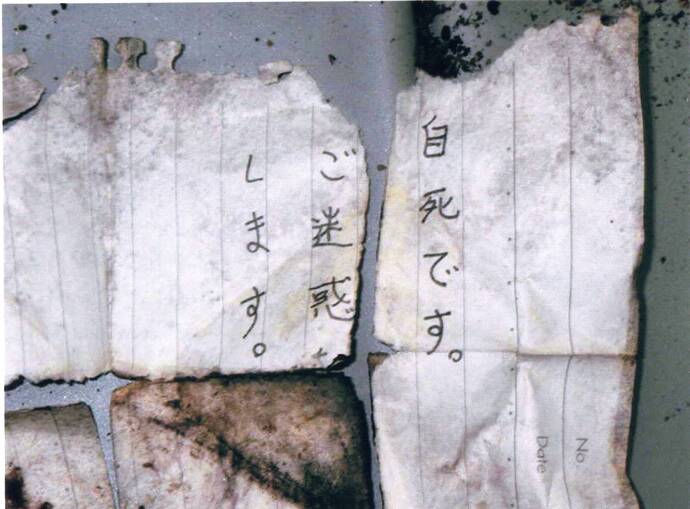 自死です。
ご迷惑
します。
No.
Date